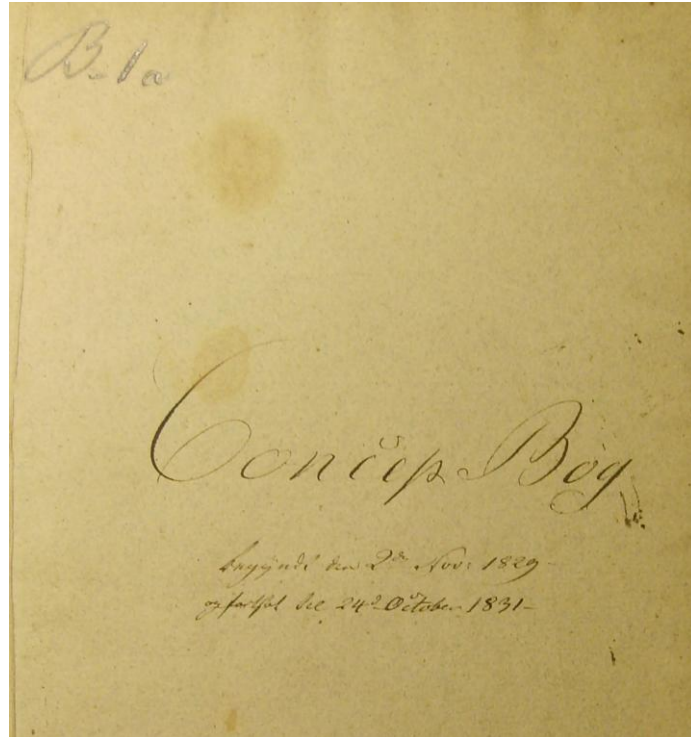 B-1a
Concep Bog
begÿndt den 2de Nov: 1829-
og fortsat til 24de October 1831-